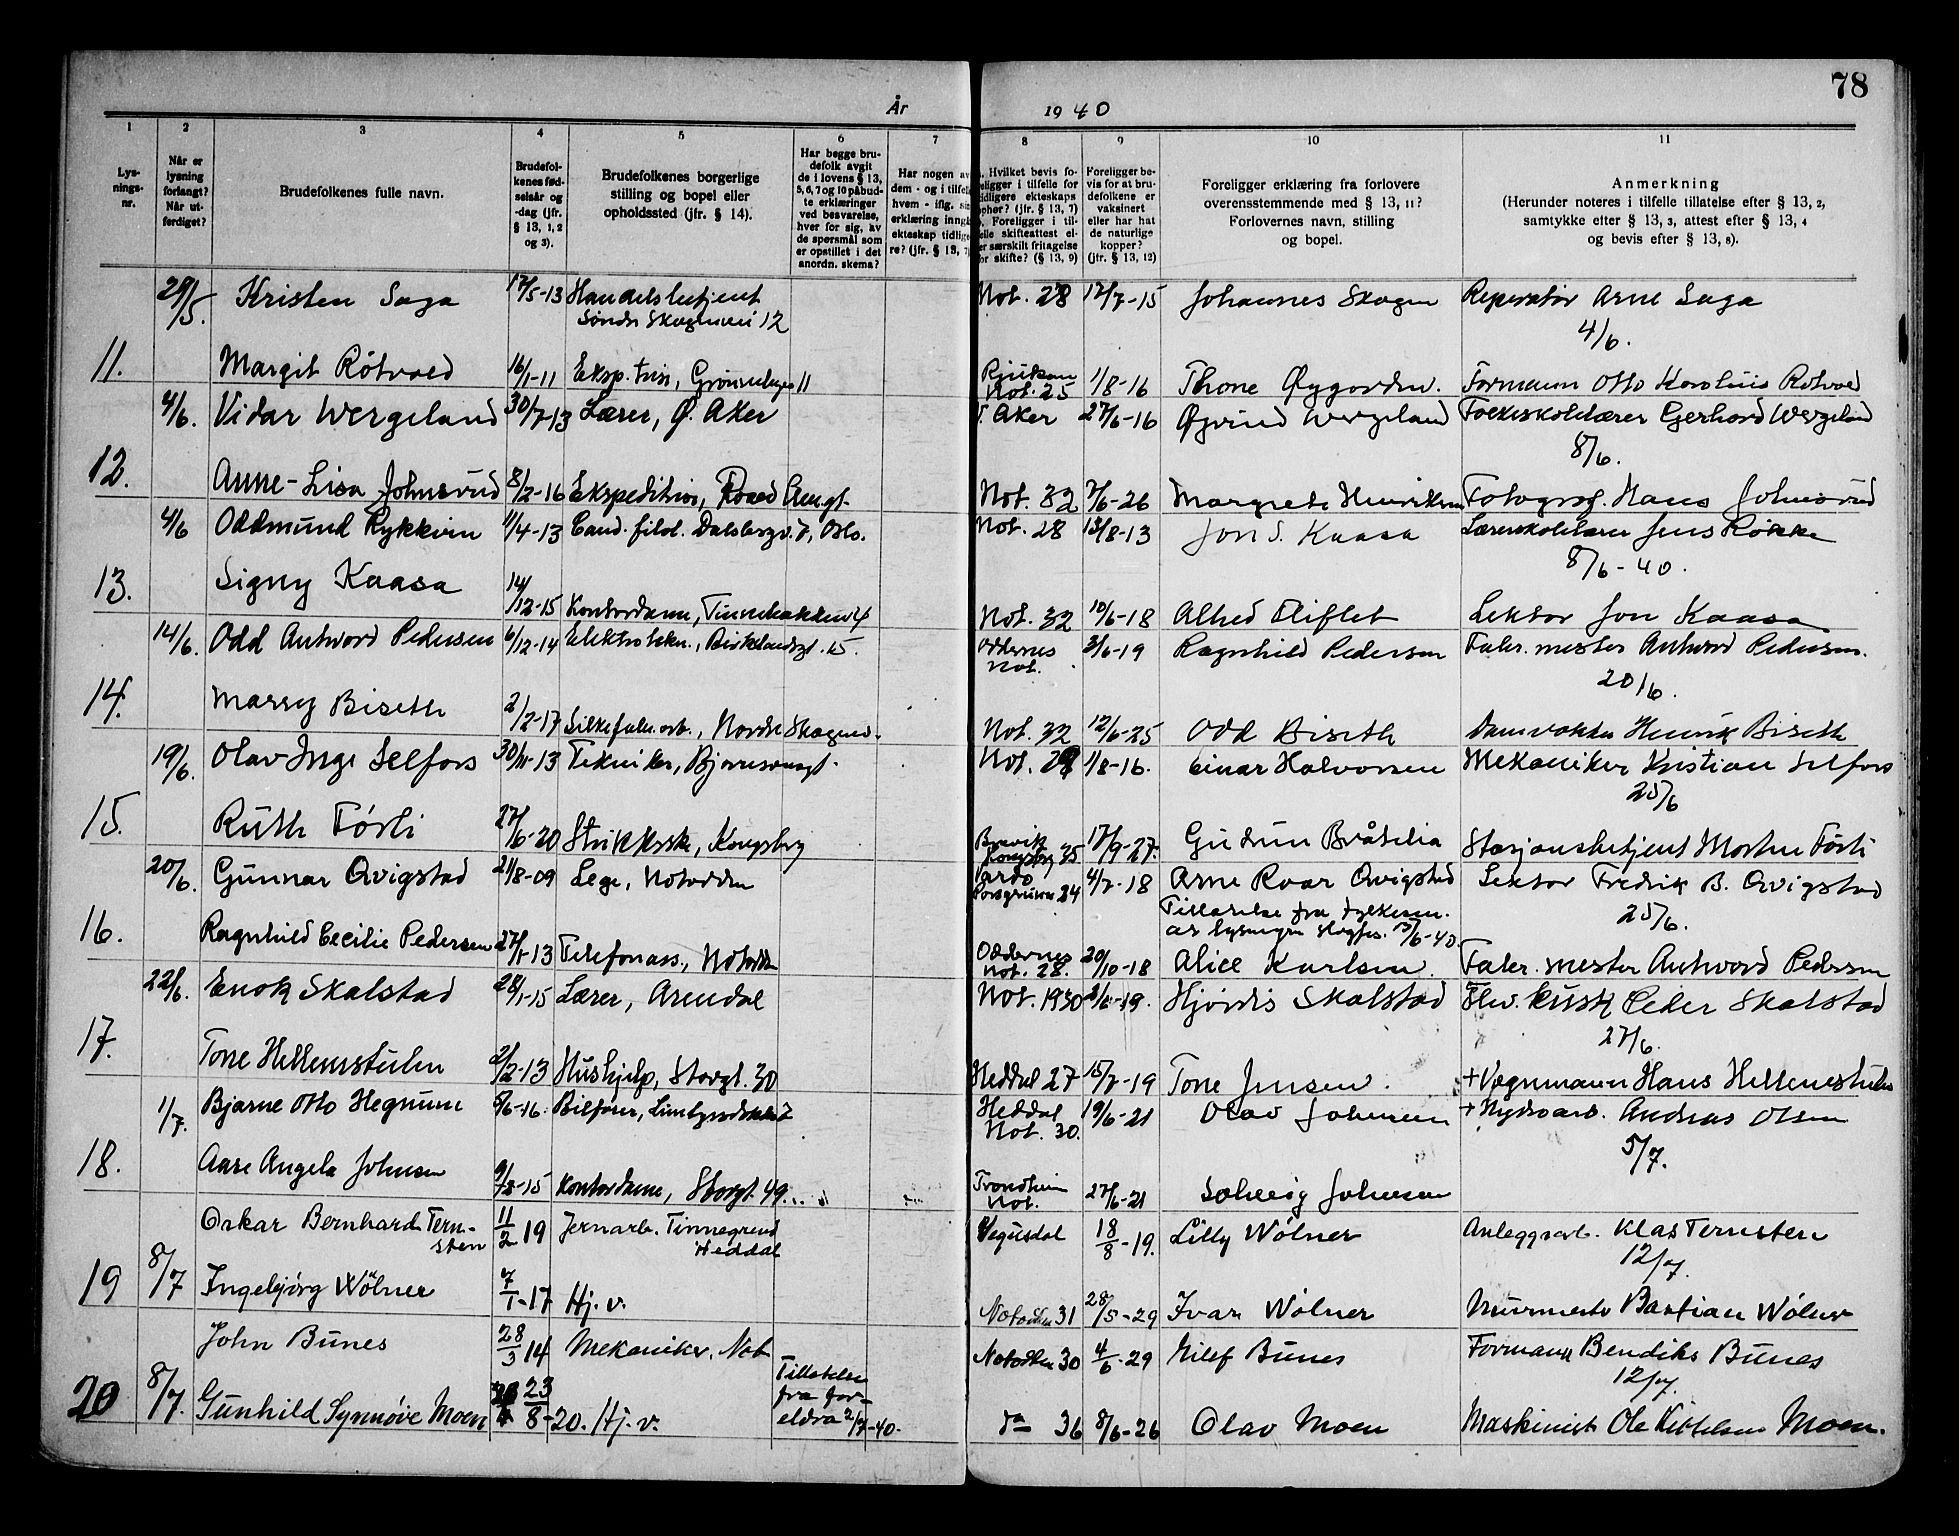 78
År 1940
1 2 3 4 5 6 7 8 9 10 11
Lys-
nings-
nr.
Når er
lysning
forlangt?
Når ut-
ferdiget?
Brudefolkenes fulle navn.
Brudefol-
kenes fød-
selsår og
-dag (jfr.
§ 13, 1, 2
og 3).
Brudefolkenes borgerlige
stilling og bopel eller
opholdssted (jfr. § 14).
Har begge bru-
defolk avgit
de i lovens § 13,
5, 6, 7 og 10 påbud-
te erklæringer
ved besvarelse,
hver for sig, av
de spørsmål som
er opstillet i det
anordn. skema?
Har nogen av
dem - og i tilfelle
hvem - iflg. sin
erklæring inngått
ekteskap tidlige-
re? (jfr. § 13, 7)
Hvilket bevis fo-
religger i tilfelle for
tidligere ekteskaps
ophør? (jfr. § 13, 7)
Foreligger i til-
felle skifteattest el-
ler særskilt fritagelse
for skifte? (§ 13, 9)
Foreligger be-
vis for at bru-
defolkene er
vaksinert
eller har hat
de naturlige
kopper?
(jfr. § 13, 12)
Foreligger erklæring fra forlovere
overensstemmende med § 13, 11?
Forlovernes navn, stilling
og bopel.
Anmerkning
(Herunder noteres i tilfelle tillatelse efter § 13, 2,
samtykke efter § 13, 3, attest efter § 13, 4
og bevis efter § 13, 8).
29/5. Kristen Saga 17/5-13 Handelsbetjent Not. 28 12/7-15 Johannes Skogen Reperatør Arne Saga
Søndre Skogenvei 12 4/6.
11. Margit Rótvold 16/1-11 Eksp. trise, 11 Rjukan Not. 25 1/8-16 Thone Øygarden. Formann Otto Karolius Rotvold
4/6. Vidar Wergeland 30/7-13 Lærer, Ø. Aker V. Aker 27/6-16 Øyvind Wergeland Folkeskolelærer Gerhard Wergeland
8/6.
12. Anne-Lisa Johnsrud 8/2-16 Ekspeditrise, Not. 32 7/6-26 Margrete Henriksen Fotograf. Hans Johnsrud
4/6 Oddmund Rykkvin 11/4-13 Cand. filol. Dalsbergv. 7, Oslo. Not. 28 13/8-13 Jon S. Kaasa Lærerskolelærer Jens Rókke
8/6-40.
13. Signy Kaasa 14/12-15 Kontordame, Tinnebakken 4 Not. 32 10/6-18 Alfred Fliflet Lektor Jon Kaasa
14/6. Odd Antword Pedersen 6/12-14 Elektrotekn., Birkelandsgt. 15. Oddernes Not. 3/6-19 Ragnhild Pedersen Fabr. mester Antword Pedersen.
20/6.
14. Marry Biseth 2/2-17 Silkefabr. arb., Nordre Skogenv. Not. 32 12/6-25 Odd Biseth Damvokter Henrik Biseth
19/6. Olav Inge Selfors 30/11-13 Tekniker, Not. 28 1/8-16. Einar Halvorsen Mekaniker Kristian Selfors
25/6
15. Ruth Tórli 27/6-20 Strikkerske, Kongsberg Brevik Kongsberg 35 17/9-27. Gudrun Bråtelia Stasjonsbetjent Morten Tórli
20/6. Gunnar Qvigstad 21/8-09 Lege, Notodden Vardø Porsgrunn 24 4/7-18 Arne Roar Qvigstad Lektor Fredrik B. Qvigstad
Tillatelse fra fylkesm. 25/6.
av lysningen
16. Ragnhild Cecilie Pedersen 27/1-13 Telefonass., Notodden Oddernes Not. 28. 20/10-18 Alice Karlsen. Fabr. mester Antword Pedersen
22/6. Enok Skalstad 28/1-15 Lærer, Arendal Not. 1930 3/6-19. Hjørdis Skalstad Elev. kusk Peder Skalstad
27/6.
17. Tone Hellenestulen 2/2-13 Hushjelp, Storgt. 30 Heddal 27 15/7-19 Tone Jensen. + Vognmann Hans Hellenestulen
1/7. Bjarne Otto Hegnum 5/6-16. Bilfører, Heddal Not. 30. 19/6-21 Olav Johnsen + Hydroarb. Andreas Olsen
5/7.
18. Aase Angela Johnsen 9/12-15 Kontordame, Storgt. 49. Trondheim Not. 27/6-21 Solveig Johnsen
Oskar Bernhard Tern-
sten 11/2 19 Jernarb. Tinnegrend Heddal Vegusdal 18/8-19. Lilly Wólner Anleggsarb. Klas Ternsten
12/7.
19 8/7 Ingebjórg Wólner 7/1-17 Hj. v. Notodden 31 28/5-29 Ivar Wólner Murmester Bastian Wólner
John Bunes 28/3 14 Mekaniker. Not Notodden 30 4/6-29 Eilef Bunes Formann Bendiks Bunes
12/7.
20 8/7. Gunhild Synnøve Moen 23/8-20. Hj. v. Tillatelse
fra for-
eldra 2/7-40. do 36 8/6-26 Olav Moen Maskinist Ole Kittelsen Moen.